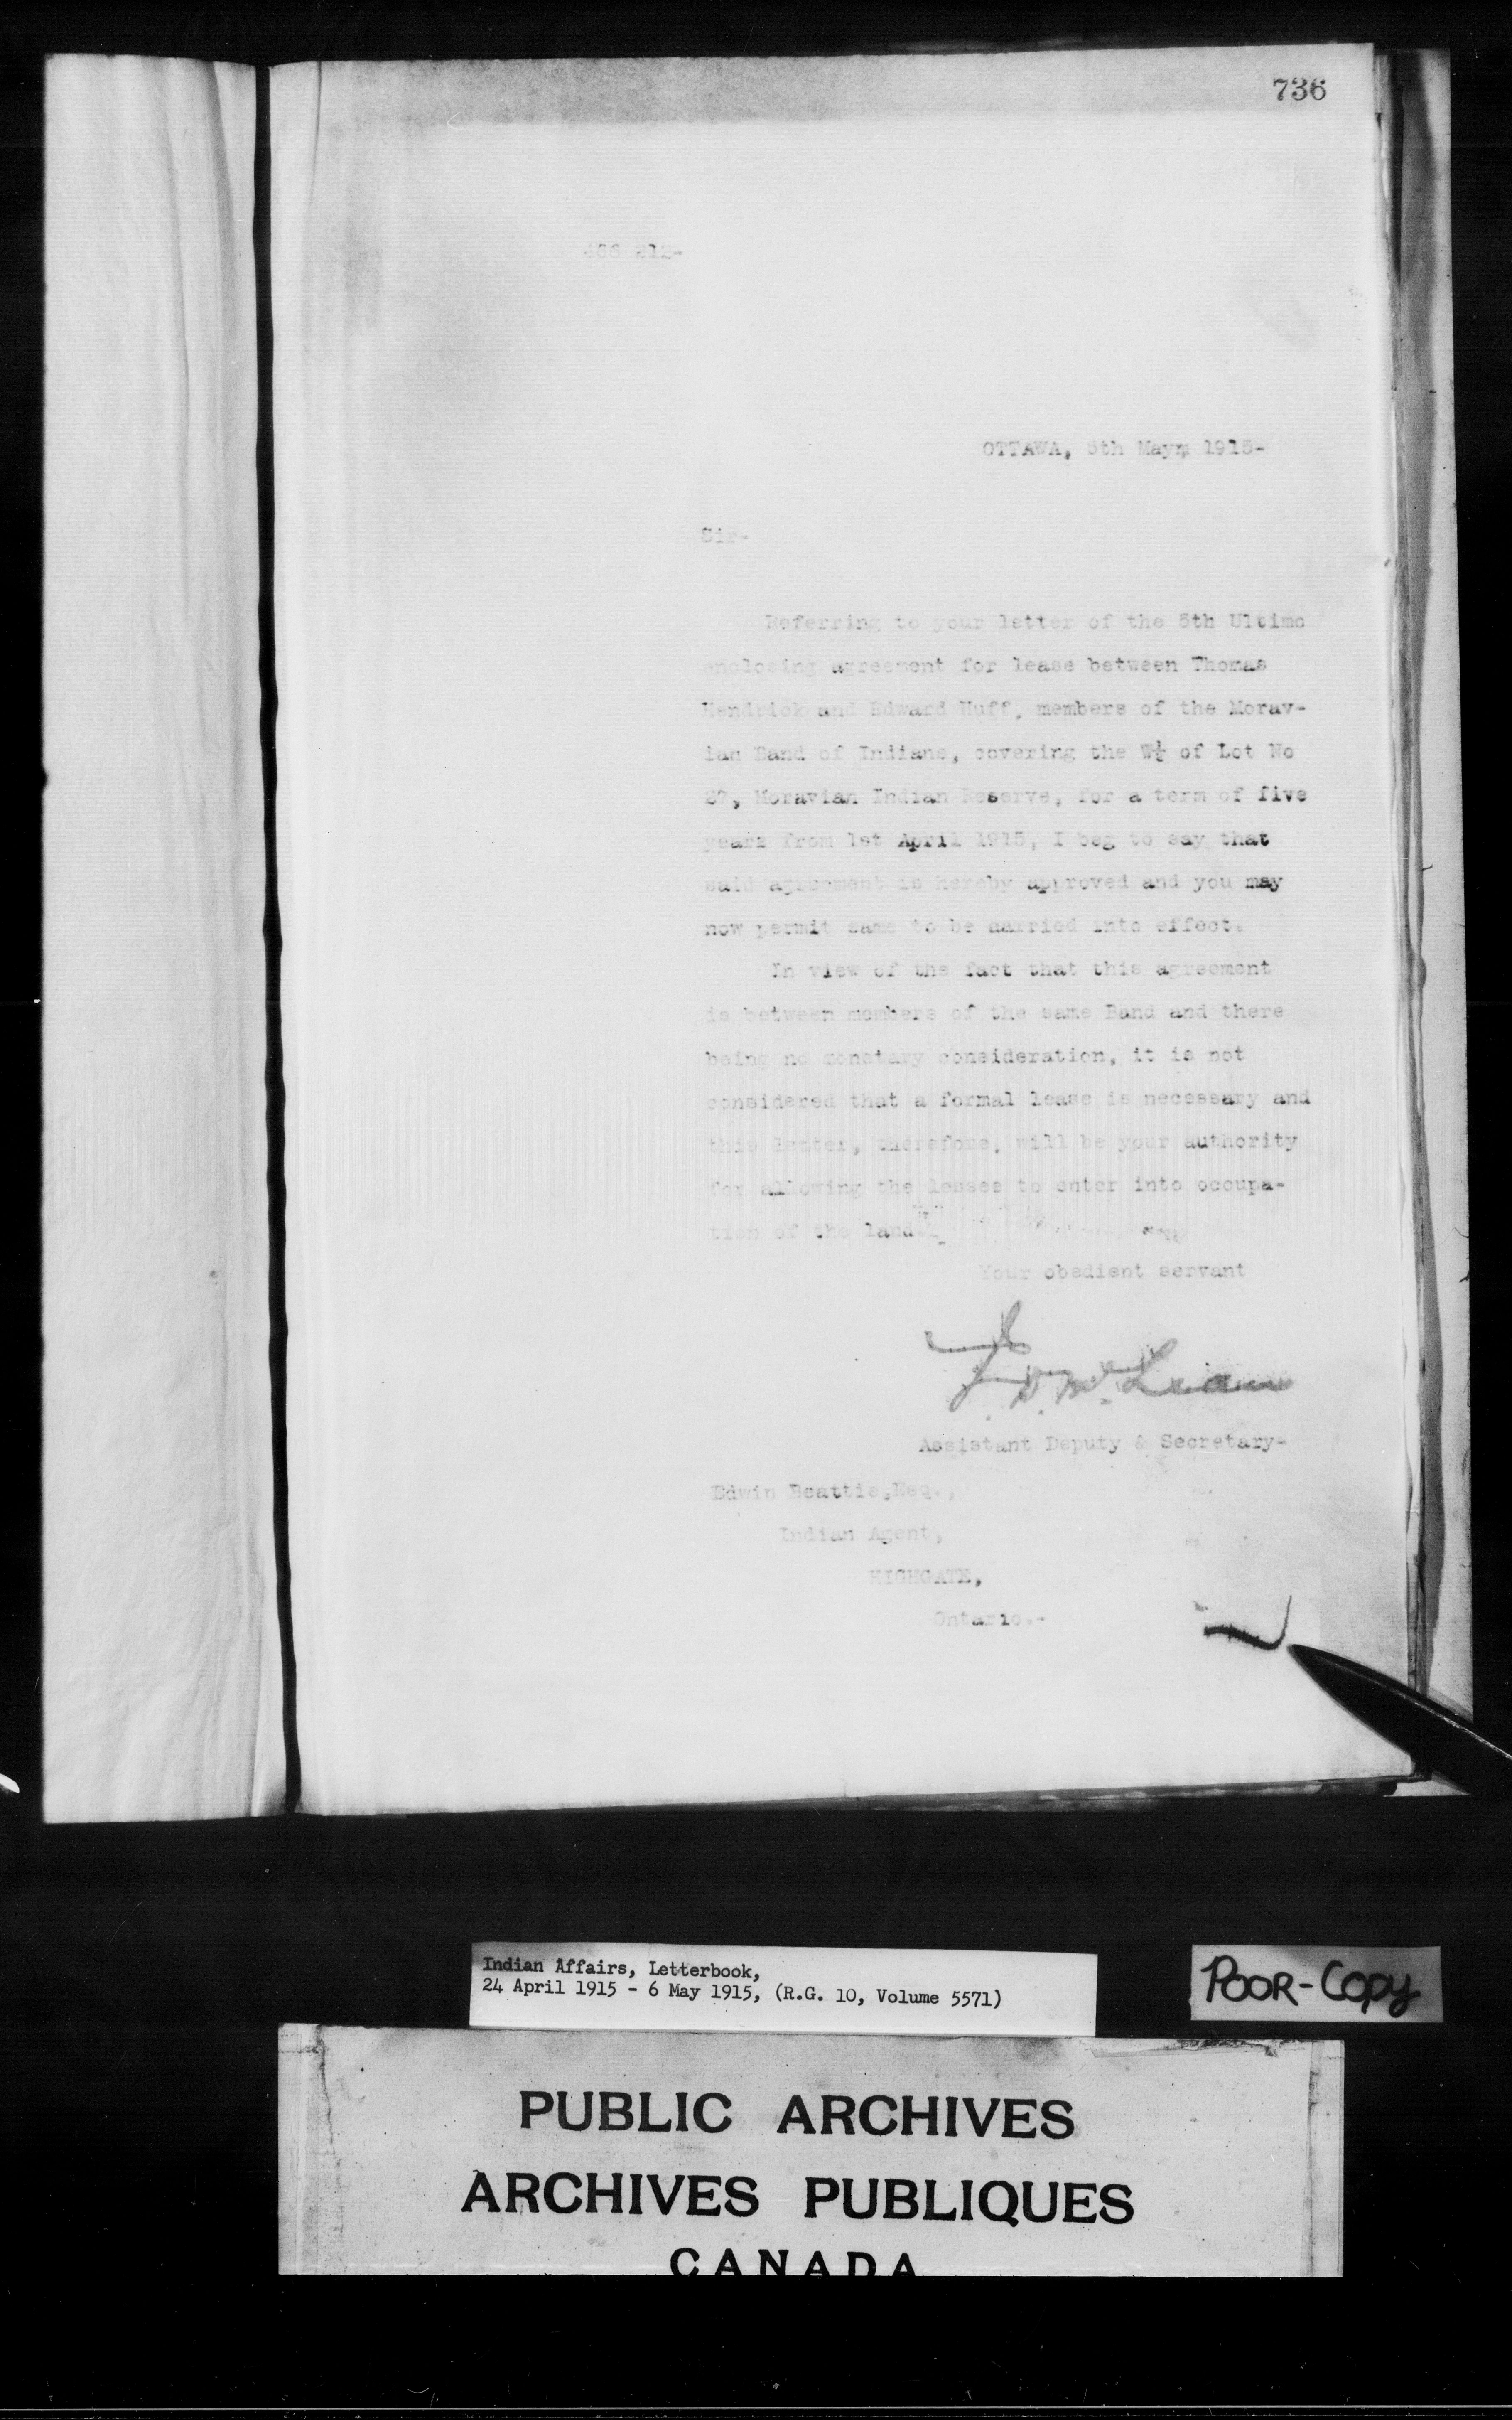 736
212-
OTTAWA, 5th Maym 1915-
Sir-
Referring to your letter of the 5th Ultimo
enclosing agreement for lease between Thomas
Hendrick and Edward Huff, members of the Morav-
ian Band of Indians, covering the W½ of Lot No
Moravian Indian Reserve, for a term of five
years from 1st April 1915, I beg to say that
said agreement is hereby approved and you may
now permit same to be aarried into effect.
In view of the fact that this agreement
is between members of the same Band and there
being no monetary consideration, it is not
considered that a formal lease is necessary and
this letter, therefore, will be your authority
for allowing the lessee to enter into occupa-
tion of the land.
Your obedient servant
J. D. McLean
Assistant Deputy & Secretary-
Edwin Beattie,Esq.,
Indian Agent,
HIGHGATE,
Ontario.-
Indian Affairs, Letterbook,
24 April 1915 - 6 May 1915, (R.G. 10, Volume 5571)
POOR-COPY
PUBLIC ARCHIVES
ARCHIVES PUBLIQUES
CANADA